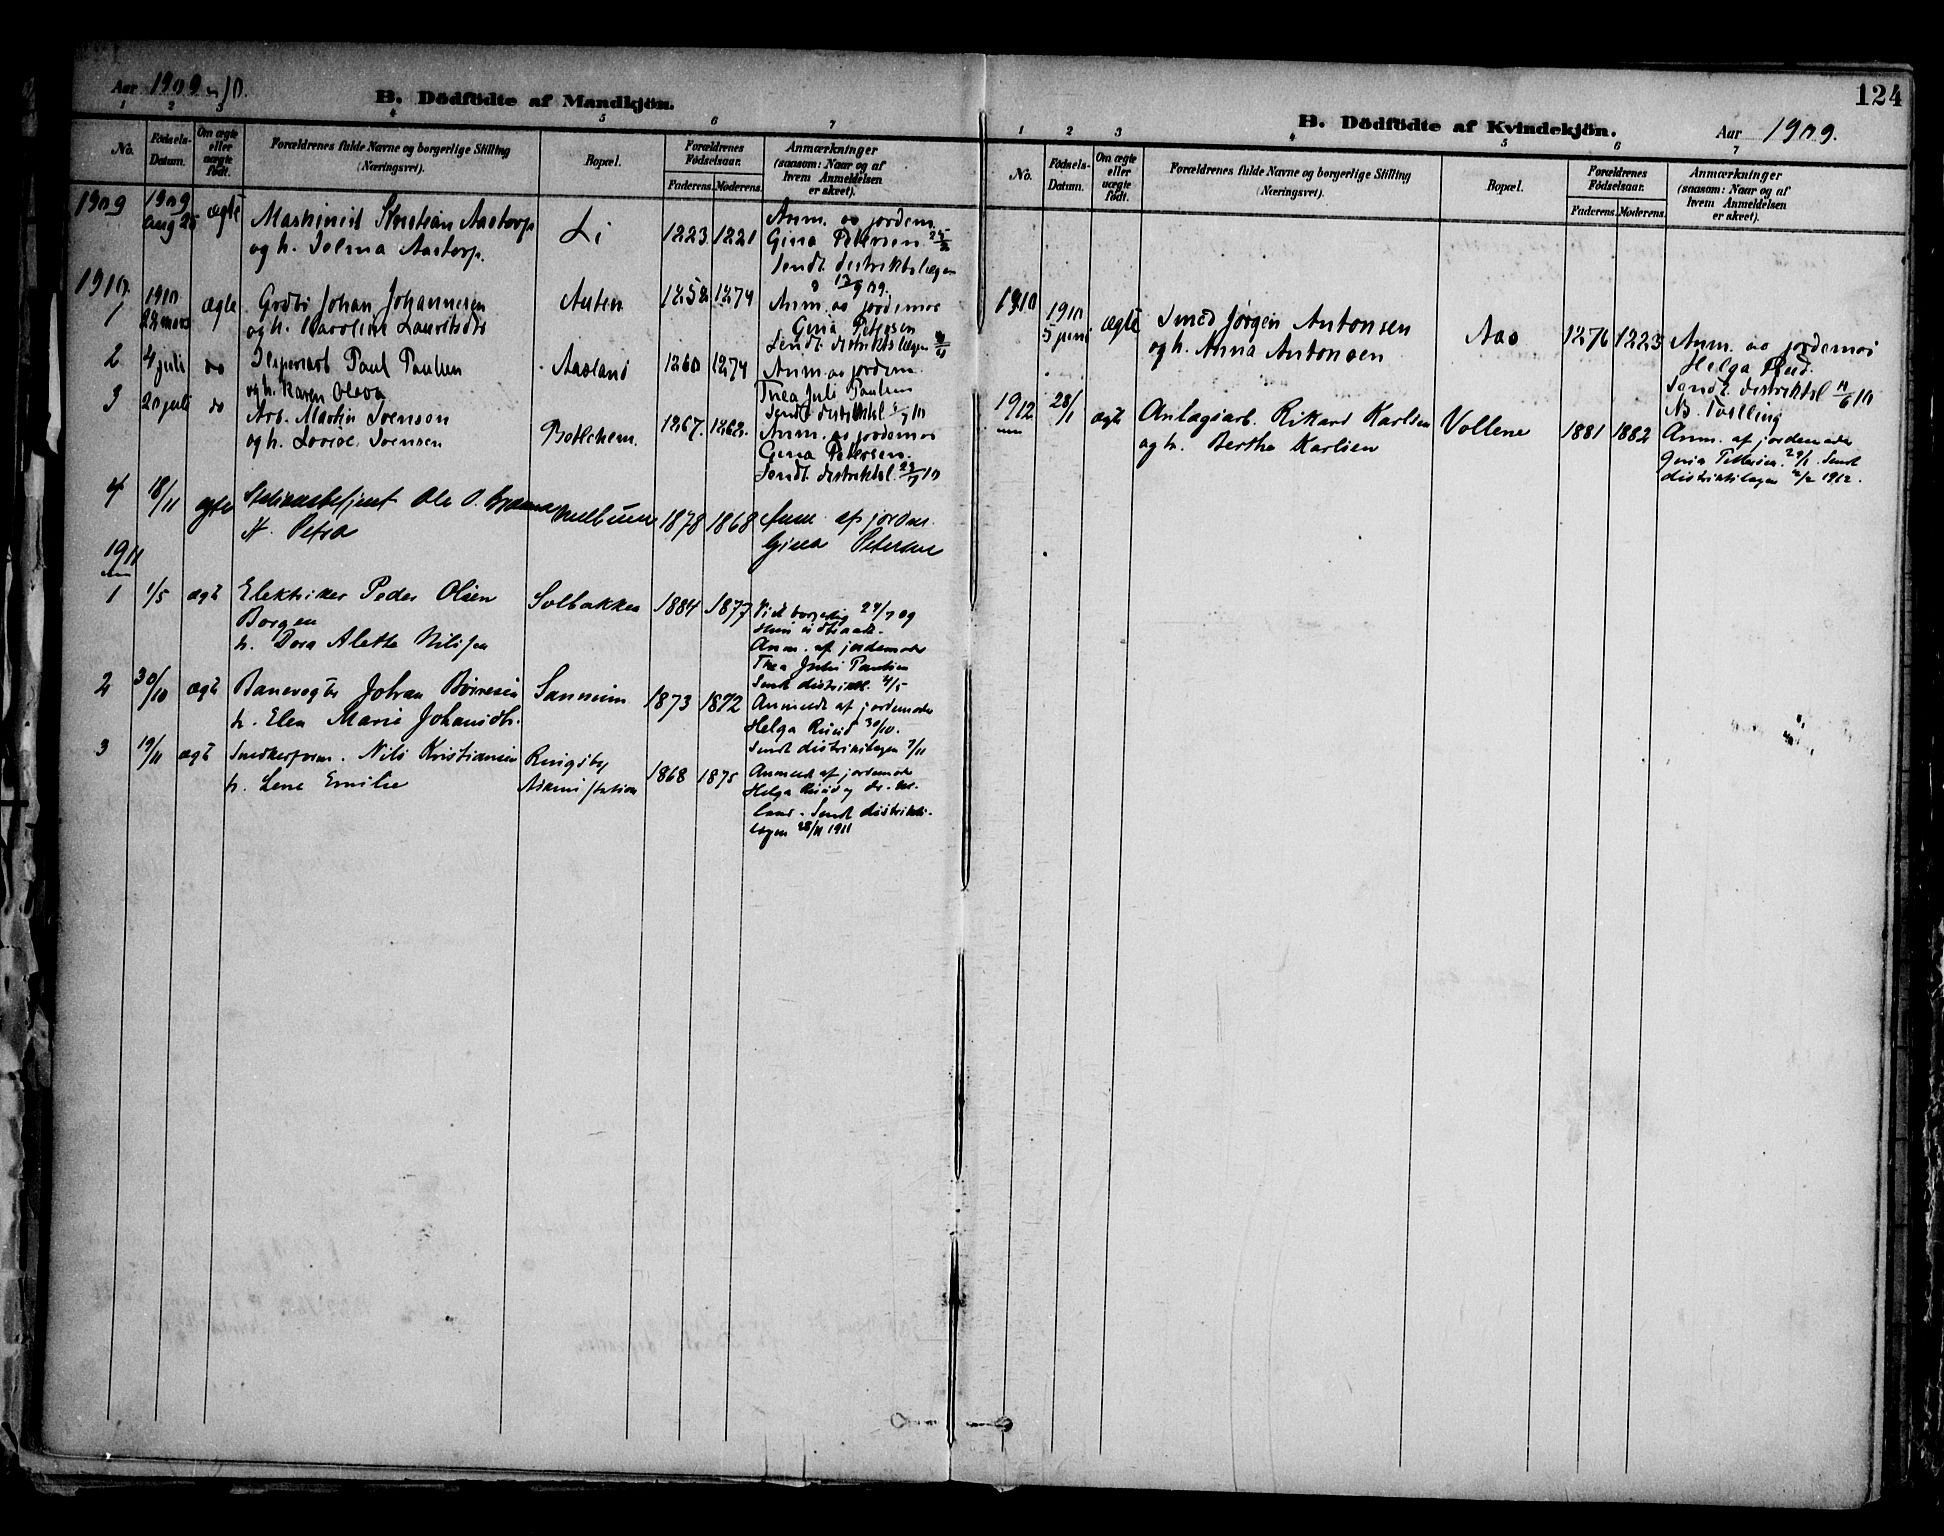 Aar 1909 og 10.
B. Dödfödte af Mandkjön.
1 2 3 4 5 6 7
No.
Födsels-Datum.
Om ægte eller uægte födt.
Forældrenes fulde Navne og borgerlige Stilling (Næringsvei).
Bopæl.
Forældrenes Födselsaar.
Faderens. Moderens.
Anmærkninger (saasom: Naar og af hvem Anmeldelsen er skeet).
1909 1909
aug 25 ægte Maskinist Kristian Aastorp Li 1883. 1881 Anm. av jordem.
og h. Selma Aastorp. Gina Petersen 25/8
Sendt distriktslægen
1910. 13/9 09.
1 1910
22 mars ægte Johan Johannesen 1858 1874 Anm. av jordemor
og h. Karoline Lauritsdtr Gina Petersen
Sendt distriktslægen
2 4 juli do Paul Paulsen Aasland 1860 1874 Anm. av jordem.
og h. Karen Oleva Thea Juli Paulsen
3 20 juli do Arb. Martin Svensen Betlehem. 1867. 1868. Sendt distriktsl. 10
og h. Lovise Svensen Anm. av jordemor
Gina Petersen.
Sendt distriktsl. 23/7 10
4 18/11 ægte Stationsbetjent Ole O. 1878 1868 Anm. af jordm.
h. Petra Gina Petersen
1911
1 1/5 ægt Elektriker Peder Olsen Solbakken 1884 1877 Viet borgerlig 24/7 09
Borgen
h. Dora Alette Nilsen Anm. af jordemoder
Thea Julie Paulsen
Sendt distriktsl. 4/5
2 30/10 ægt Banevogter Johan Børresen Sannum 1873 1872 Anmeldt af jordemoder
h. Elen Marie Johansdtr. Helga Ruud 30/10.
Sendt distriktslægen 7/11
3 19/11 ægt Snedkerform. Nils Kristiansen Ringsby 1868 1875 Anmeldt af jordemoder
h. Lene Emilie Askim station Helga Ruud
Sendt distrikts-
lægen 28/11 1911
124
B. Dödfödte af Kvindekjön.
Aar 1909.
1 2 3 4 5 6 7
No.
Födsels-Datum.
Om ægte eller uægte födt.
Forældrenes fulde Navne og borgerlige Stilling (Næringsvei).
Bopæl.
Forældrenes Födselsaar.
Faderens. Moderens.
Anmærkninger (saasom: Naar og af hvem Anmeldelsen er skeet).
1910 1910
5 juni ægte Smed Jørgen Antonsen Aas 1876 1883 Anm. av jordemor
og h. Anna Antonsen Helga Ruud.
Sendt distriktsl. 11/6 10
NB Tvilling
1912 28/1 ægte Anlægsarb. Rikard Karlsen Vollene 1881 1882 Anm. af jordemoder
og h. Berthe Karlsen Gina Pettersen 29/1. Sendt
distriktslægen 2/2 1912.